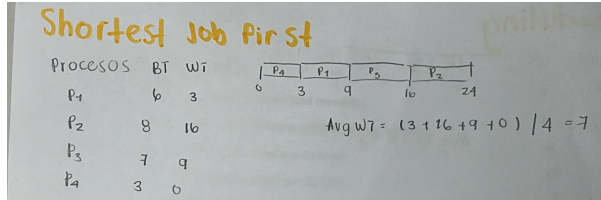 Shortest Job First
Procesos BT WT
P1 6 3
P2 8 16
P3 7 9
P4 3 0
P4 P1 P3 P2
0 3 9 16 24
Avg WT = (3 + 16 + 9 + 0) / 4 = 7